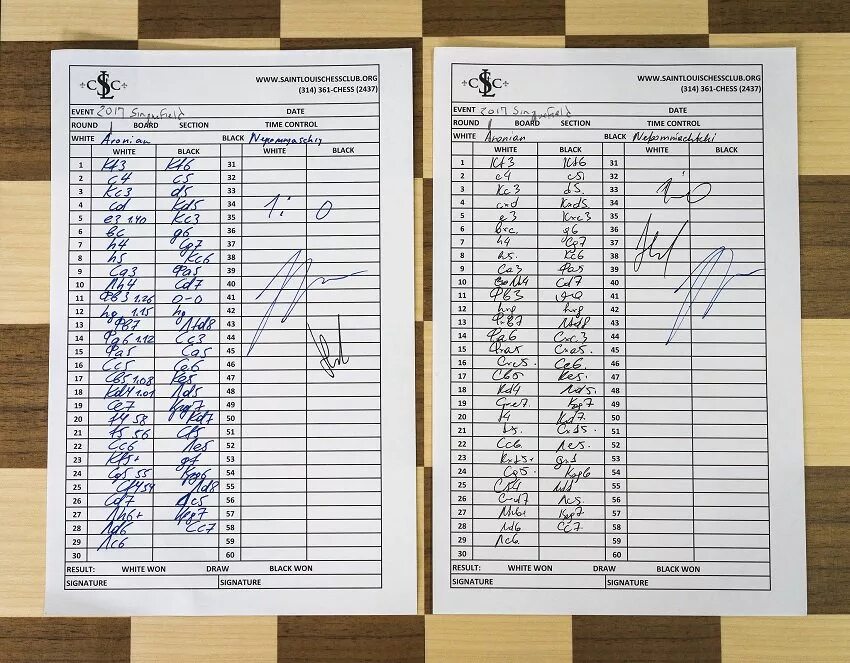 CSLC
WWW.SAINTLOUISCHESSCLUB.ORG
(314) 361-CHESS (2437)
EVENT 2017 Singuefield DATE
ROUND 1 BOARD SECTION TIME CONTROL
WHITE Aronian BLACK
WHITE BLACK WHITE BLACK
1 Kf3 Kf6 31
2 c4 c5 32
3 Kc3 d5 33
4 cd Kd5 34 1:0
5 e3 1.40 Kc3 35
6 bc g6 36
7 h4 Cg7 37
8 h5 Kc6 38
9 Ca3 Фa5 39
10 Лh4 Cd7 40
11 Фb3 1.26 0-0 41
12 hg 1.15 hg 42
13 Фb7 Лfd8 43
14 Фa6 1.12 Cc3 44
15 Фa5 Ca5 45
16 Cc5 Ce6 46
17 Cb5 1.08 Ke5 47
18 Kd4 1.01 Лd5 48
19 Ce7 Kpg7 49
20 f4 58 Kd7 50
21 f5 56 Cf5 51
22 Cc6 Лe5 52
23 Kf5+ gf 53
24 Cg5 55 Kpg6 54
25 Cf4 54 Лd8 55
26 Cd7 Лc5 56
27 Лh6+ Kpg7 57
28 Лd6 Cc7 58
29 Лc6 59
30 60
RESULT: WHITE WON DRAW BLACK WON
SIGNATURE SIGNATURE
CSLC
WWW.SAINTLOUISCHESSCLUB.ORG
(314) 361-CHESS (2437)
EVENT 2017 Singuefield DATE
ROUND 1 BOARD SECTION TIME CONTROL
WHITE Aronian BLACK Nepomniachtchi
WHITE BLACK WHITE BLACK
1 Kf3 Kf6 31
2 c4 c5 32
3 Kc3 d5. 33
4 cxd Kxd5. 34
5 e3 Kxc3 35
6 bxc. g6 36
7 h4 Cg7 37
8 h5. Kc6 38
9 Ca3 Фa5 39
10 Лh4 Cd7 40
11 Фb3 0-0 41
12 hxg hxg 42
13 Фxb7 Лfd8 43
14 Фa6 Cxc3 44
15 Фxa5 Cxa5. 45
16 Cxc5. Ce6 46
17 Cb5. Ke5. 47
18 Kd4 Лd5. 48
19 Cxe7. Kpg7 49
20 f4 Kd7. 50
21 f5. Cxf5. 51
22 Cc6 Лe5. 52
23 Kxf5+ gxf 53
24 Cg5. Kpg6 54
25 Cf4 55
26 Cxd7 Лc5. 56
27 Лh6+ Kpg7 57
28 Лd6 Cc7 58
29 Лc6 59
30 60
RESULT: WHITE WON DRAW BLACK WON
SIGNATURE SIGNATURE